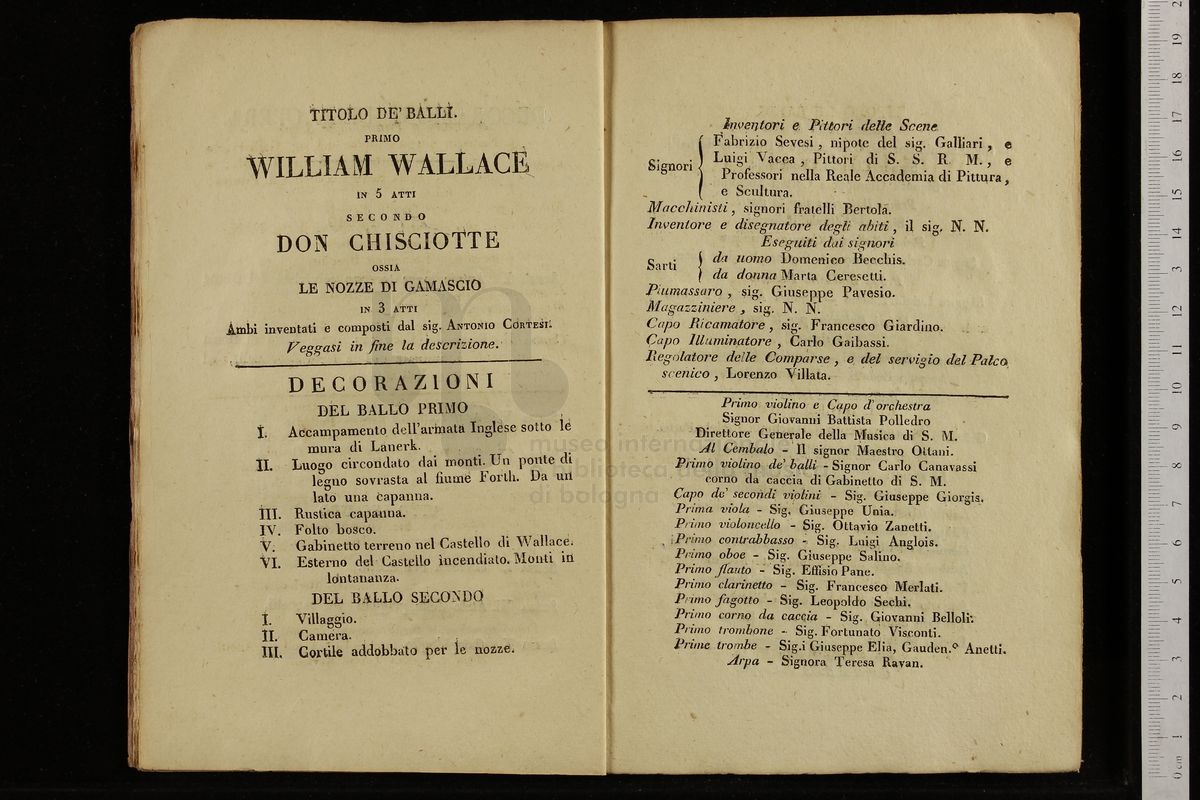 TITOLO DE' BALLI.
PRIMO
WILLIAM WALLACE
IN 5 ATTI
SECONDO
DON CHISCIOTTE
OSSIA
LE NOZZE DI GAMASCIO
IN 3 ATTI
Ambi inventati e composti dal sig. ANTONIO CORTESI.
Veggasi in fine la descrizione.
DECORAZIONI
DEL BALLO PRIMO
I. Accampamento dell'armata Inglese sotto le
mura di Lanerk.
II. Luogo circondato dai monti. Un ponte di
legno sovrasta al fiume Forth. Da un
lato una capanna.
III. Rustica capanna.
IV. Folto bosco.
V. Gabinetto terreno nel Castello di Wallace.
VI. Esterno del Castello incendiato. Monti in
lontananza.
DEL BALLO SECONDO
I. Villaggio.
II. Camera.
III. Cortile addobbato per le nozze.
Inventori e Pittori delle Scene
Signori
Fabrizio Sevesi, nipote del sig. Galliari, e
Luigi Vacca, Pittori di S. S. R. M., e
Professori nella Reale Accademia di Pittura,
e Scultura.
Macchinisti, signori fratelli Bertola.
Inventore e disegnatore degli abiti, il sig. N. N.
Eseguiti dai signori
Sarti
da uomo Domenico Becchis.
da donna Marta Ceresetti.
Piumassaro, sig. Giuseppe Pavesio.
Magazziniere, sig. N. N.
Capo Ricamatore, sig. Francesco Giardino.
Capo Illuminatore, Carlo Gaibassi.
Regolatore delle Comparse, e del servigio del Palco
scenico, Lorenzo Villata.
Primo violino e Capo d'orchestra
Signor Giovanni Battista Polledro
Direttore Generale della Musica di S. M.
Al Cembalo - Il signor Maestro Ottani.
Primo violino de' balli - Signor Carlo Canavassi
corno da caccia di Gabinetto di S. M.
Capo de' secondi violini - Sig. Giuseppe Giorgis.
Prima viola - Sig. Giuseppe Unia.
Primo violoncello - Sig. Ottavio Zanetti.
Primo contrabbasso - Sig. Luigi Anglois.
Primo oboe - Sig. Giuseppe Salino.
Primo flauto - Sig. Effisio Pane.
Primo clarinetto - Sig. Francesco Merlati.
Primo fagotto - Sig. Leopoldo Sechi.
Primo corno da caccia - Sig. Giovanni Belloli.
Primo trombone - Sig. Fortunato Visconti.
Prime trombe - Sig.i Giuseppe Elia, Gauden.º Anetti.
Arpa - Signora Teresa Ravan.
museo internazionale
biblioteca della musica
di bologna
0 cm 1 2 3 4 5 6 7 8 9 10 11 12 13 14 15 16 17 18 19 2